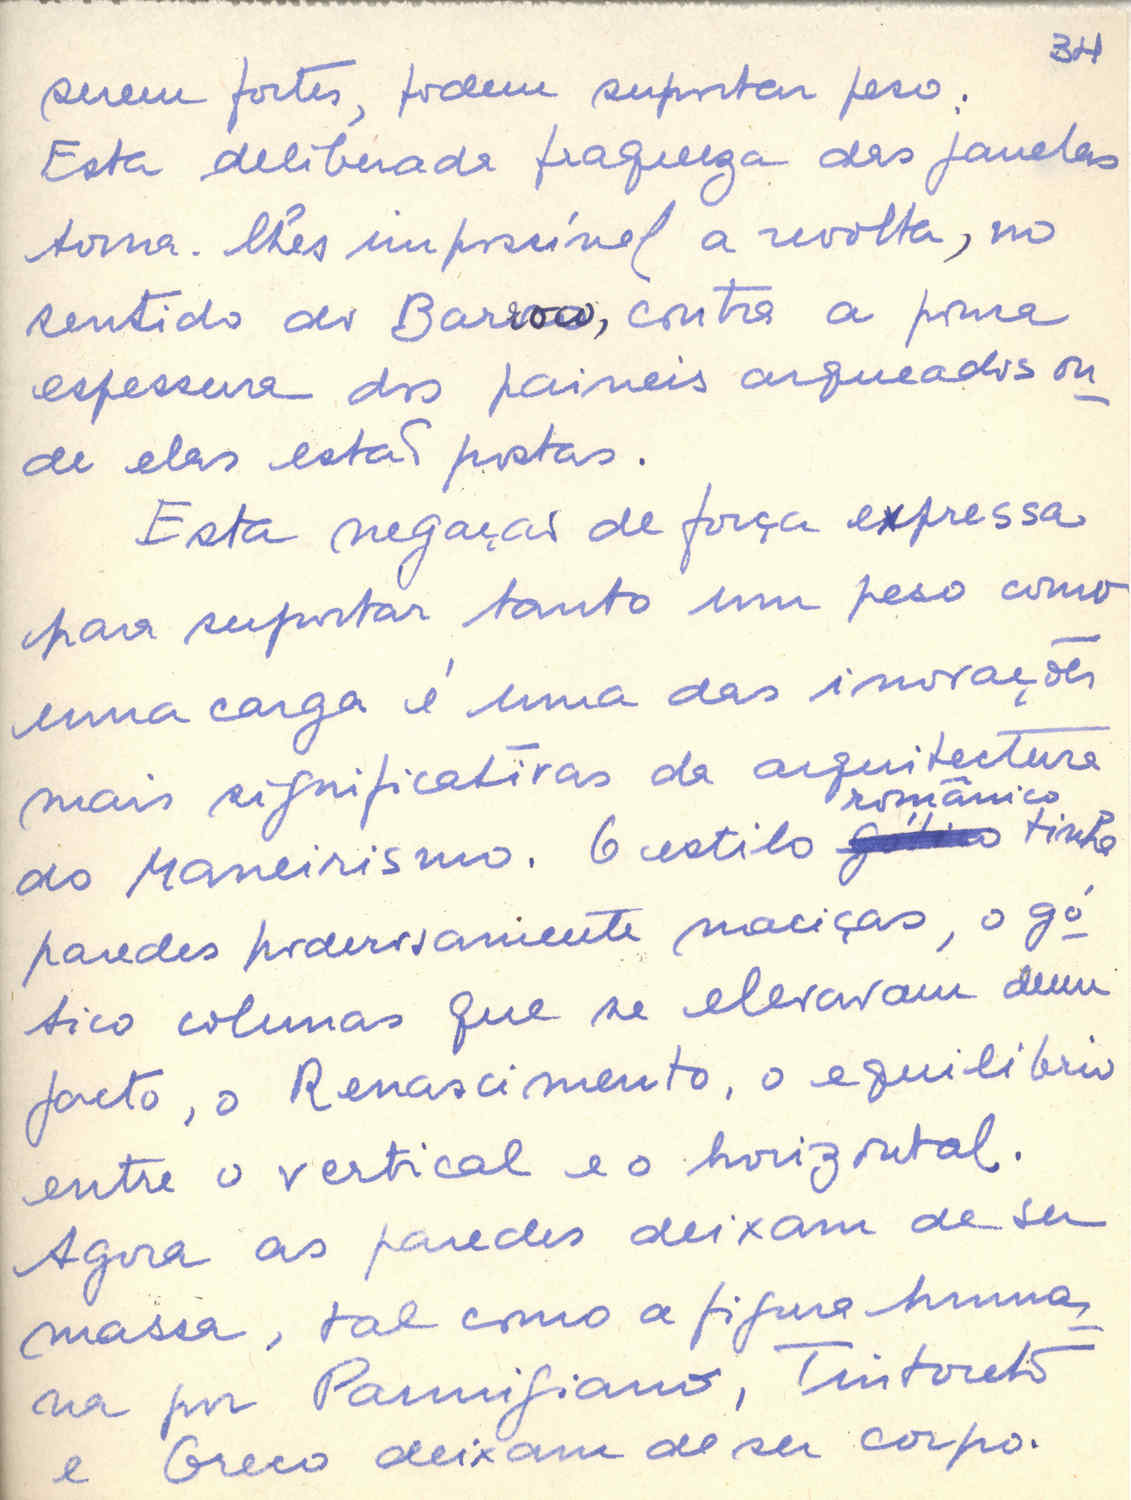 34
serem fortes, podem suportar peso.
Esta deliberada fraqueza das janelas
torna-lhes impossível a revolta, no
sentido do Barroco, contra a pouca
espessura dos paineis arqueados on
de elas estão postas.
Esta negação de força expressa
para suportar tanto um peso como
uma carga é uma das inovações
mais significativas da arquitectura
românico
do Maneirismo. O estilo gótico tinha
paredes poderosamente maciças, o gó
tico colunas que se elevavam dum
jacto, o Renascimento, o equilibrio
entre o vertical e o horizontal.
Agora as paredes deixam de ser
massa, tal como a figura huma
na por Parmigiano, Tintoreto
e Greco deixam de ser corpo.